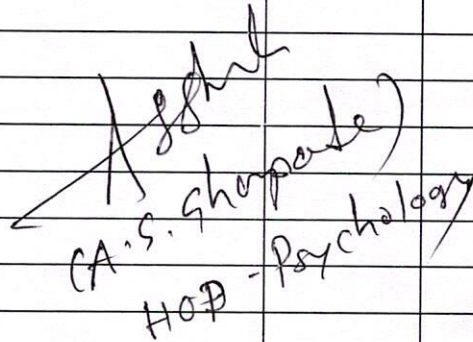 (A. S. Ghorpade)
HOD - Psychology